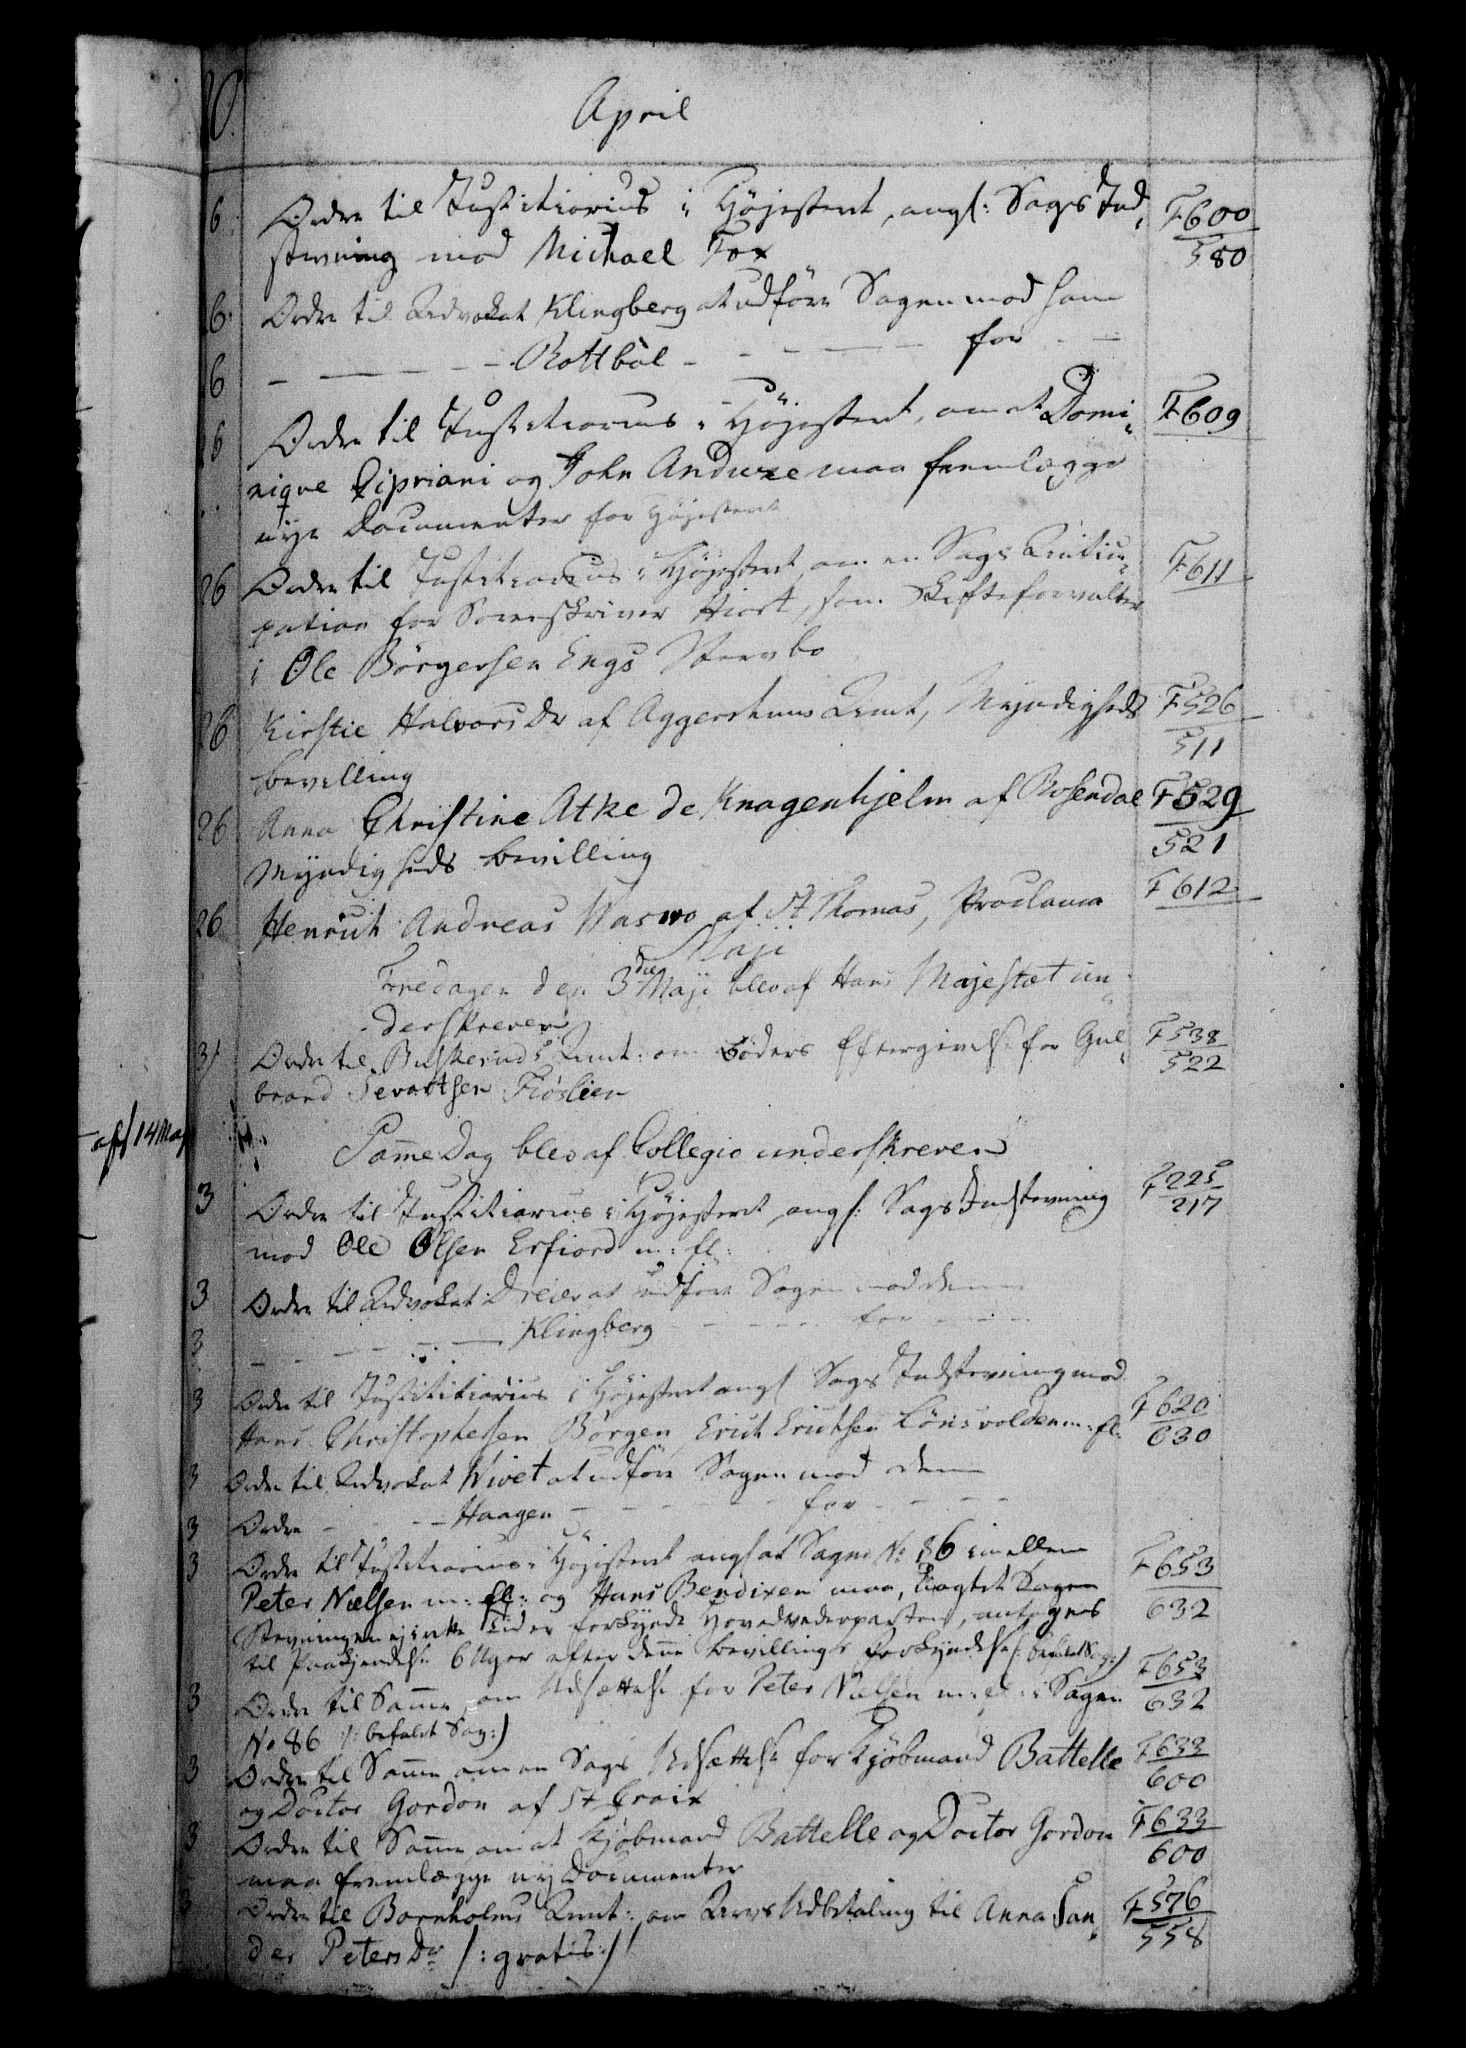 April
6. Ordre til Justitiarius i Højesteret, angl: Sags Ind- F600
stevning mod Michael Fox 580
26. Ordre til Advokat Klingberg at udføre Sagen mod ham
6 – – – – – Rottböl – – – – – for – –
26 Ordre til Justitiarius i Højesteret, om at Domi- F609
nique Cipriani og John Anduze maa fremlægge
nye Documenter for Højesteret
26 Ordre til Justitiarius i Højesteret, om en Sags Antici- F611
pation for Sorenskriver Hiort, som Skifteforvalter
i Ole Börgersen Engs Stervbo
26 Kirstie Halvors Dr af Aggershuus Amt, Myndigheds F526
bevilling 511
26 Anna Christine Atke de Knagenhjelm af Rosendal F529
Myndigheds bevilling 521
26 Henrich Andreas Waswo af St Thomas, Proclama F612
Maji
Fredagen den 3die Maji blev af Hans Majestæt un-
derskreven
3/ Ordre til Buskeruds Amt: om Böders Eftergivelse for Gul- F538
brand Sevartsen Fiöslien 522
afs 14 Maj
Samme Dag blev af Collegio underskreven
3 Ordre til Justitiarius i Højesteret, angl: Sags Indstevning F225
mod Ole Olsen Erfiord m: fl: 217
3 Ordre til Advokat Dreier at udføre Sagen mod dem
3 – – – – – Klingberg – – – – for – – –
3 Ordre til Justititiarius i Højesteret angl Sags Indstevning mod
Hans Christophersen Börgen, Erich Erichsen Lönsvolden m: fl. F620
630
3 Ordre til Advokat Wivet at udføre Sagen mod dem
3 Ordre – – – Haagen – – – – – for – – – –
3 Ordre til Justitiarius i Højesteret angl at Sagen No 86 imellem F653
Peter Nielsen m: fl: og Hans Bendixen maa, uagtet
Stevningen ej i rette Tid er forkyndt Hovedvederparten, antages 632
til Paakjendelse 6 Uger efter denne bevillings Forkyndelse (: befalet Sag:)
3 Ordre til Samme, om Udsættelse for Peter Nielsen m: fl: i Sagen F653
No 86 /: befalet Sag:) 632
3 Ordre til Samme om en Sags Udsættelse for Kjöbmand Battelle F633
og Doctor Gordon af St Croix 600
3 Ordre til Samme om at Kjöbmand Battelle og Doctor Gordon F633
maa fremlægge nye Documenter 600
3 Ordre til Bornholms Amt: om Arvs Udbetaling til Anna San- F576
der Peters Dr /: gratis:/ 558